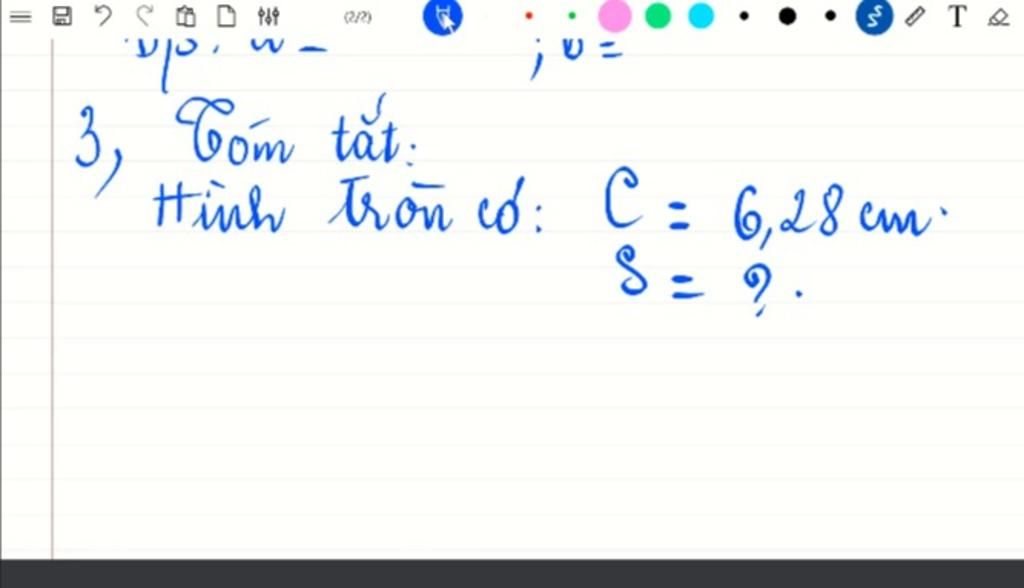 (2/2)
T
3, Tóm tắt:
Hình tròn có: C = 6,28 cm.
S = ?.